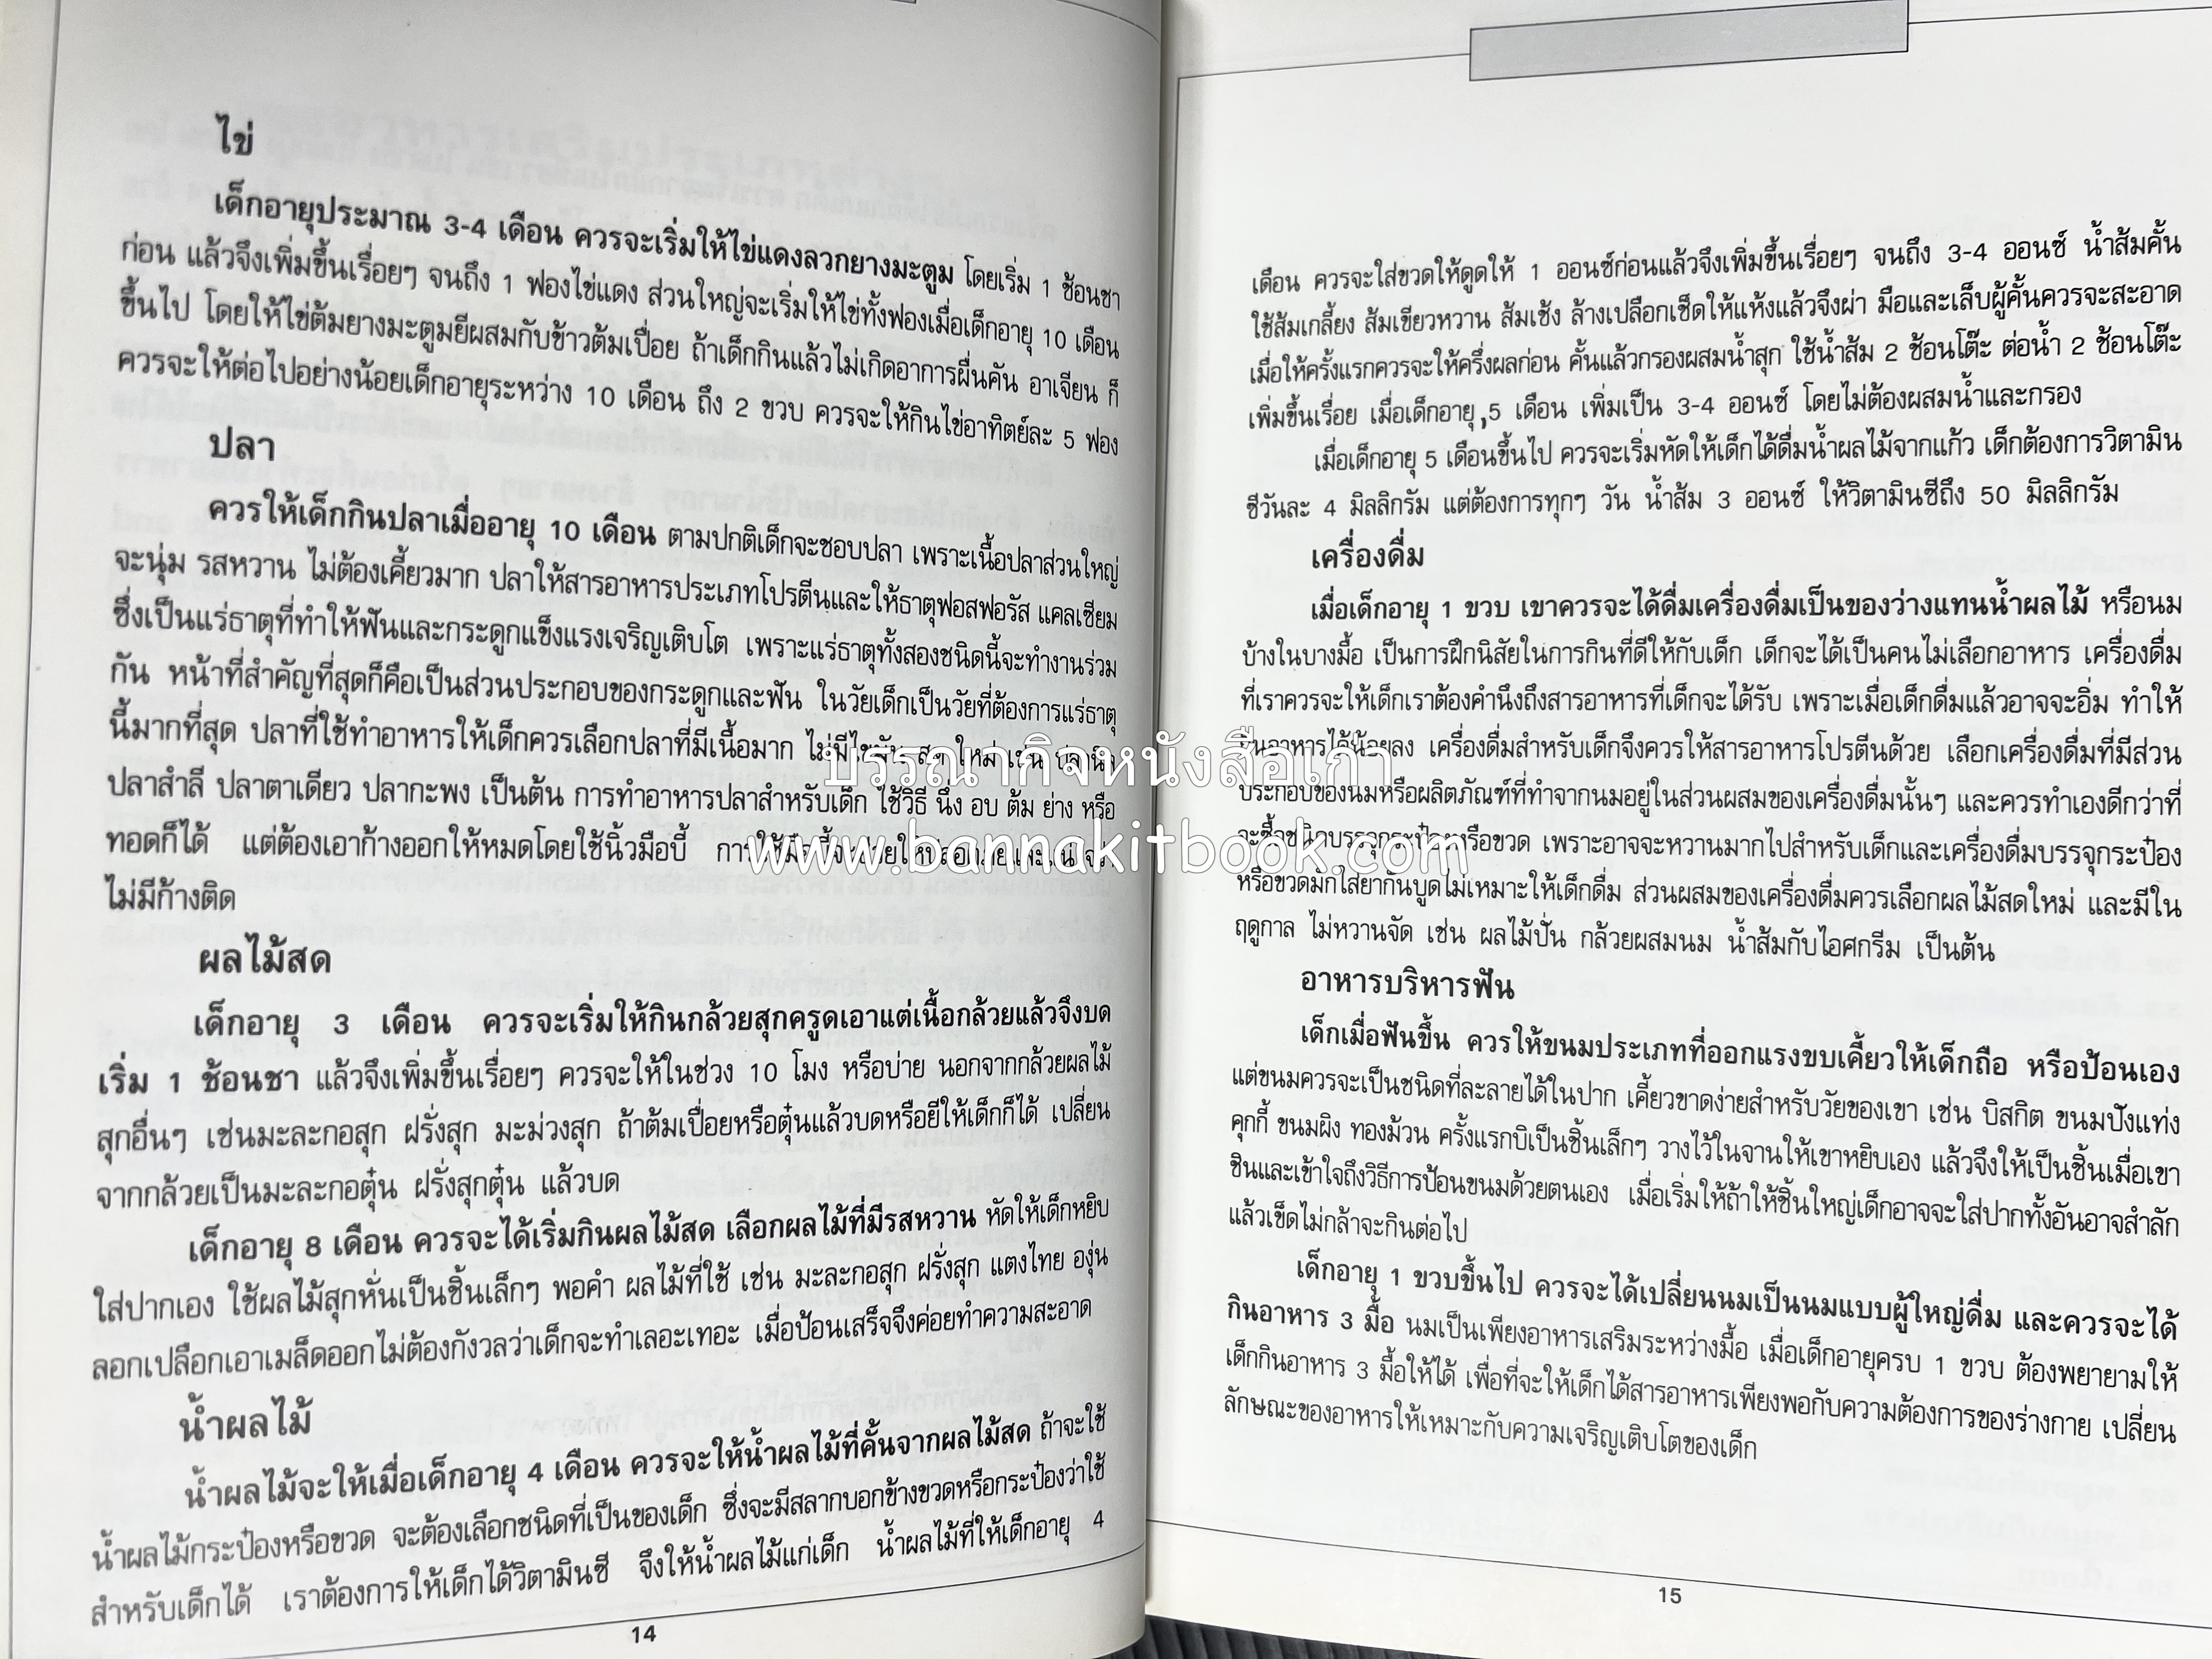 ไข่
เด็กอายุประมาณ 3-4 เดือน ควรจะเริ่มให้ไข่แดงลวกยางมะตูม โดยเริ่ม 1 ช้อนชา
ก่อน แล้วจึงเพิ่มขึ้นเรื่อยๆ จนถึง 1 ฟองไข่แดง ส่วนใหญ่จะเริ่มให้ไข่ทั้งฟองเมื่อเด็กอายุ 10 เดือน
ขึ้นไป โดยให้ไข่ต้มยางมะตูมยีผสมกับข้าวต้มเปื่อย ถ้าเด็กกินแล้วไม่เกิดอาการผื่นคัน อาเจียน ก็
ควรจะให้ต่อไปอย่างน้อยเด็กอายุระหว่าง 10 เดือน ถึง 2 ขวบ ควรจะให้กินไข่อาทิตย์ละ 5 ฟอง
ปลา
ควรให้เด็กกินปลาเมื่ออายุ 10 เดือน ตามปกติเด็กจะชอบปลา เพราะเนื้อปลาส่วนใหญ่
จะนุ่ม รสหวาน ไม่ต้องเคี้ยวมาก ปลาให้สารอาหารประเภทโปรตีนและให้ธาตุฟอสฟอรัส แคลเซียม
ซึ่งเป็นแร่ธาตุที่ทำให้ฟันและกระดูกแข็งแรงเจริญเติบโต เพราะแร่ธาตุทั้งสองชนิดนี้จะทำงานร่วม
กัน หน้าที่สำคัญที่สุดก็คือเป็นส่วนประกอบของกระดูกและฟัน ในวัยเด็กเป็นวัยที่ต้องการแร่ธาตุ
นี้มากที่สุด ปลาที่ใช้ทำอาหารให้เด็กควรเลือกปลาที่มีเนื้อมาก ไม่มีไขมัน สด ใหม่ เช่น
ปลาสำลี ปลาตาเดียว ปลากะพง เป็นต้น การทำอาหารปลาสำหรับเด็ก ใช้วิธี นึ่ง อบ ต้ม ย่าง หรือ
ทอดก็ได้ แต่ต้องเอาก้างออกให้หมดโดยใช้นิ้วมือบี้
ไม่มีก้างติด
ผลไม้สด
เด็กอายุ 3 เดือน ควรจะเริ่มให้กินกล้วยสุกครูดเอาแต่เนื้อกล้วยแล้วจึงบด
เริ่ม 1 ช้อนชา แล้วจึงเพิ่มขึ้นเรื่อยๆ ควรจะให้ในช่วง 10 โมง หรือบ่าย นอกจากกล้วยผลไม้
สุกอื่นๆ เช่นมะละกอสุก ฝรั่งสุก มะม่วงสุก ถ้าต้มเปื่อยหรือตุ๋นแล้วบดหรือยีให้เด็กก็ได้ เปลี่ยน
จากกล้วยเป็นมะละกอตุ๋น ฝรั่งสุกตุ๋น แล้วบด
เด็กอายุ 8 เดือน ควรจะได้เริ่มกินผลไม้สด เลือกผลไม้ที่มีรสหวาน หัดให้เด็กหยิบ
ใส่ปากเอง ใช้ผลไม้สุกหั่นเป็นชิ้นเล็กๆ พอคำ ผลไม้ที่ใช้ เช่น มะละกอสุก ฝรั่งสุก แตงไทย องุ่น
ลอกเปลือกเอาเมล็ดออกไม่ต้องกังวลว่าเด็กจะทำเลอะเทอะ เมื่อป้อนเสร็จจึงค่อยทำความสะอาด
น้ำผลไม้
น้ำผลไม้จะให้เมื่อเด็กอายุ 4 เดือน ควรจะให้น้ำผลไม้ที่คั้นจากผลไม้สด ถ้าจะใช้
น้ำผลไม้กระป๋องหรือขวด จะต้องเลือกชนิดที่เป็นของเด็ก ซึ่งจะมีสลากบอกข้างขวดหรือกระป๋องว่าใช้
สำหรับเด็กได้ เราต้องการให้เด็กได้วิตามินซี จึงให้น้ำผลไม้แก่เด็ก น้ำผลไม้ที่ให้เด็กอายุ 4
14
เดือน ควรจะใส่ขวดให้ดูดให้ 1 ออนซ์ก่อนแล้วจึงเพิ่มขึ้นเรื่อยๆ จนถึง 3-4 ออนซ์ น้ำส้มคั้น
ใช้ส้มเกลี้ยง ส้มเขียวหวาน ส้มเช้ง ล้างเปลือกเช็ดให้แห้งแล้วจึงผ่า มือและเล็บผู้คั้นควรจะสะอาด
เมื่อให้ครั้งแรกควรจะให้ครึ่งผลก่อน คั้นแล้วกรองผสมน้ำสุก ใช้น้ำส้ม 2 ช้อนโต๊ะ ต่อน้ำ 2 ช้อนโต๊ะ
เพิ่มขึ้นเรื่อย เมื่อเด็กอายุ,5 เดือน เพิ่มเป็น 3-4 ออนซ์ โดยไม่ต้องผสมน้ำและกรอง
เมื่อเด็กอายุ 5 เดือนขึ้นไป ควรจะเริ่มหัดให้เด็กได้ดื่มน้ำผลไม้จากแก้ว เด็กต้องการวิตามิน
ซีวันละ 4 มิลลิกรัม แต่ต้องการทุกๆ วัน น้ำส้ม 3 ออนซ์ ให้วิตามินซีถึง 50 มิลลิกรัม
เครื่องดื่ม
เมื่อเด็กอายุ 1 ขวบ เขาควรจะได้ดื่มเครื่องดื่มเป็นของว่างแทนน้ำผลไม้ หรือนม
บ้างในบางมื้อ เป็นการฝึกนิสัยในการกินที่ดีให้กับเด็ก เด็กจะได้เป็นคนไม่เลือกอาหาร เครื่องดื่ม
ที่เราควรจะให้เด็กเราต้องคำนึงถึงสารอาหารที่เด็กจะได้รับ เพราะเมื่อเด็กดื่มแล้วอาจจะอิ่ม ทำให้
กินอาหารได้น้อยลง เครื่องดื่มสำหรับเด็กจึงควรให้สารอาหารโปรตีนด้วย เลือกเครื่องดื่มที่มีส่วน
ประกอบของนมหรือผลิตภัณฑ์ที่ทำจากนมอยู่ในส่วนผสมของเครื่องดื่มนั้นๆ และควรทำเองดีกว่าที่
จะซื้อชนิดบรรจุกระป๋องหรือขวด เพราะอาจจะหวานมากไปสำหรับเด็กและเครื่องดื่มบรรจุกระป๋อง
หรือขวดมักใส่ยากันบูดไม่เหมาะให้เด็กดื่ม ส่วนผสมของเครื่องดื่มควรเลือกผลไม้สดใหม่ และมีใน
ฤดูกาล ไม่หวานจัด เช่น ผลไม้ปั่น กล้วยผสมนม น้ำส้มกับไอศกรีม เป็นต้น
อาหารบริหารฟัน
เด็กเมื่อฟันขึ้น ควรให้ขนมประเภทที่ออกแรงขบเคี้ยวให้เด็กถือ หรือป้อนเอง
แต่ขนมควรจะเป็นชนิดที่ละลายได้ในปาก เคี้ยวขาดง่ายสำหรับวัยของเขา เช่น บิสกิต ขนมปังแท่ง
คุกกี้ ขนมผิง ทองม้วน ครั้งแรกบิเป็นชิ้นเล็กๆ วางไว้ในจานให้เขาหยิบเอง แล้วจึงให้เป็นชิ้นเมื่อเขา
ชินและเข้าใจถึงวิธีการป้อนขนมด้วยตนเอง เมื่อเริ่มให้ถ้าให้ชิ้นใหญ่เด็กอาจจะใส่ปากทั้งอันอาจสำลัก
แล้วเข็ดไม่กล้าจะกินต่อไป
เด็กอายุ 1 ขวบขึ้นไป ควรจะได้เปลี่ยนนมเป็นนมแบบผู้ใหญ่ดื่ม และควรจะได้
กินอาหาร 3 มื้อ นมเป็นเพียงอาหารเสริมระหว่างมื้อ เมื่อเด็กอายุครบ 1 ขวบ ต้องพยายามให้
เด็กกินอาหาร 3 มื้อให้ได้ เพื่อที่จะให้เด็กได้สารอาหารเพียงพอกับความต้องการของร่างกาย เปลี่ยน
ลักษณะของอาหารให้เหมาะกับความเจริญเติบโตของเด็ก
15
บรรณากิจหนังสือเก่า
www.bannakitbook.com